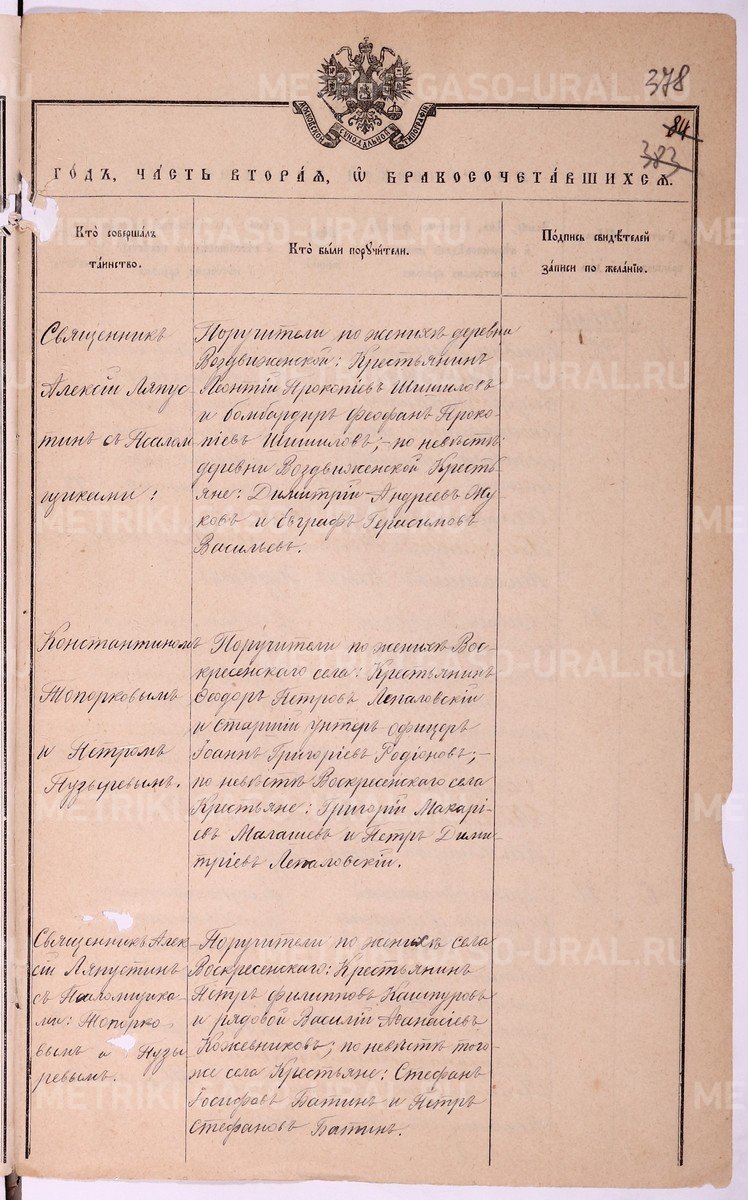 378
84
383
МОСКОВСКОЙ СѴНОДАЛЬНОЙ ТИПОГРАФІИ
ГОДЪ, ЧАСТЬ ВТОРАЯ, Ѡ БРАКОСОЧЕТАВШИХСЯ.
Кто совершалъ
таинство.
Кто были поручители.
Подпись свидѣтелей
записи по желанію.
Священникъ
Алексій Ляпус-
тинъ съ Псалом
щиками:
Константиномъ
Топорковымъ
и Петромъ
Пузыревымъ.
Поручители по женихѣ деревни
Воздвиженской: Крестьянинъ
Леонтій Прокопіевъ Шишиловъ
и бомбардиръ Феофанъ Проко-
піевъ Шишиловъ; по невѣстѣ:
деревни Воздвиженской Кресть-
яне: Димитрій Андреевъ Жу
ковъ и Евграфъ Герасимовъ
Васильевъ.
Поручители по женихѣ Вос-
кресенскаго села: Крестьянинъ
Ѳеодоръ Петровъ Лепаловскій
и старшій унтеръ офицеръ
Іоаннъ Григоріевъ Родіоновъ;-
по невѣстѣ Воскресенскаго села
Крестьяне: Григорій Макарі-
евъ Малашевъ и Петръ Дими-
тріевъ Лепаловскій.
Священникъ Алек-
сій Ляпустинъ
съ Псаломщика-
ми: Топорко-
вымъ и Пузы
ревымъ.
Поручители по женихѣ села
Воскресенскаго: Крестьянинъ
Петръ Филипповъ Кашпуровъ
и рядовой Василій Аѳанасіевъ
Кожевниковъ; по невѣстѣ того-
же села Крестьяне: Стефанъ
Іосифовъ Батинъ и Петръ
Стефановъ Батинъ.
METRIKI.GASO-URAL.RU